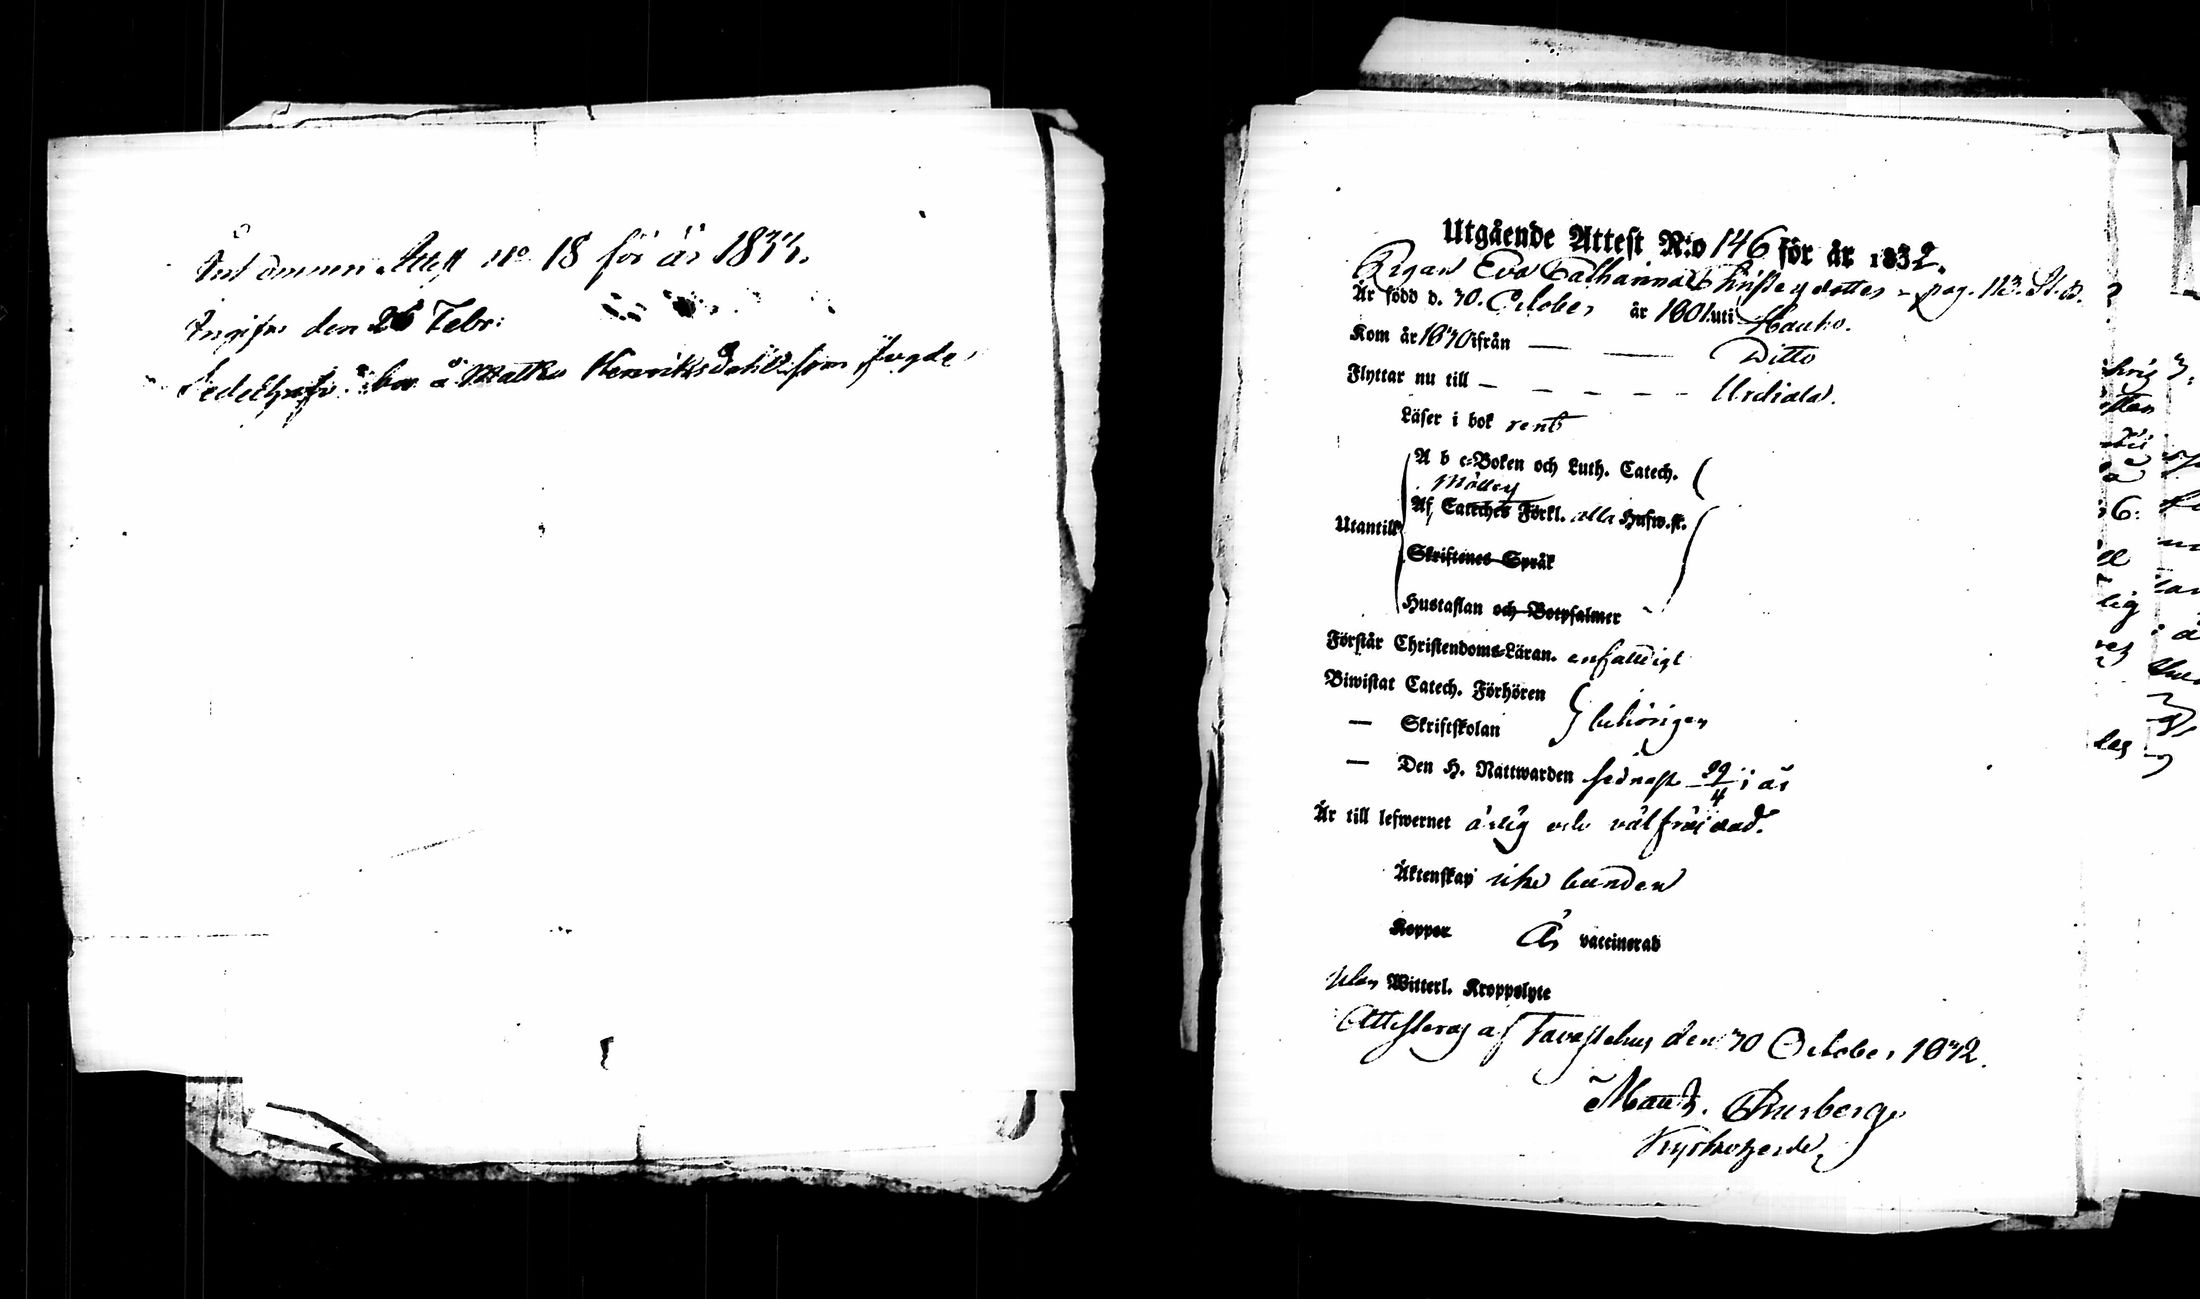 Inkommen Attest No 18 för år 1833.
Ingifv. den 26 Febr:
bor å Mattas Henriksdahl som
Utgående Attest N:o 146 för år 1832.
Pigan Eva Catharina Christersdotter - pag. 113. St. B.
Är född d. 30. October år 1801 uti Hauho.
Kom år 1830 ifrån — — Ditto
Flyttar nu till — — — — — Urdiala.
Läser i bok rent
A b c-Boken och Luth. Catech.
Möllers
Utantill Af Cateches Förkl. alla Hufw.st.
Skriftenes Språk
Hustaflan och Botpsalmer
Förstår Christendoms-Läran. enfaldigt
Biwistat Catech. Förhören
— Skriftskolan behörigen
— Den H. Nattwarden sednast 29/4 i år
Är till lefwernet ärlig och välfräjdad.
Äktenskap icke bunden
Koppor Är vaccinerad
utan Witterl. Kroppslyte
Attesteras af Tavastehus den 30 October 1832.